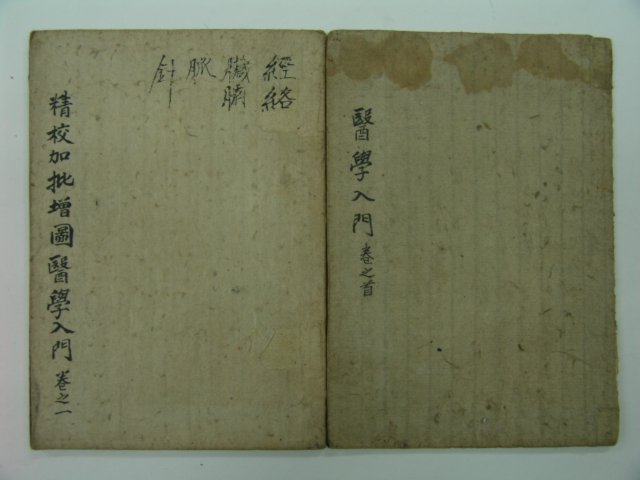 醫學入門 卷之首
經絡
臟腑
脈
針
精校加批增圖醫學入門 卷之一